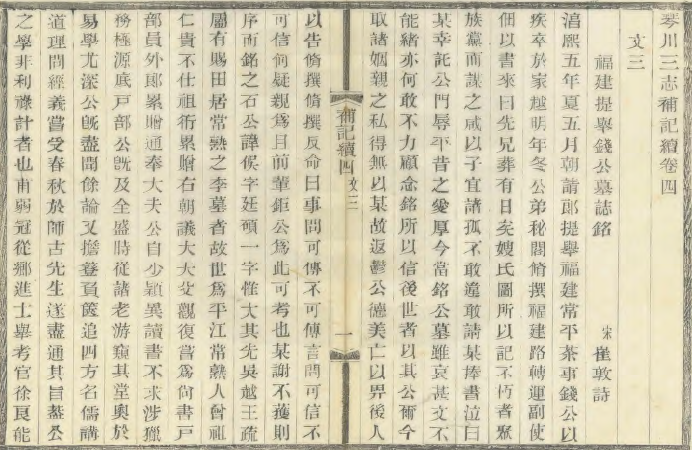 琴川三志補記續卷四
文三
福建提舉錢公墓誌銘
宋 崔敦詩
淳熙五年夏五月朝請郎提舉福建常平茶事錢公以
疾卒於家越明年冬公弟秘閣脩撰福建路轉運副使
佃以書來曰先兄葬有日矣嫂氏圖所以記不朽者聚
族黨而謀之咸以子宜諸孤不敢遑敢請某捧書泣曰
某幸託公門辱平昔之愛厚今當銘公墓雖哀甚文不
能緒亦何敢不力顧念銘所以信後世者以其公爾今
取諸姻親之私得無以某故返鬱公德美亡以畀後人
補記續四 文三
一
以告脩撰脩撰反命曰事問可傳不可傳言問可信不
可信何疑親爲且前輩鉅公爲此可考也某謝不獲則
序而銘之石公諱俁字廷碩一字惟大其先吳越王疏
屬有賜田居常熟之李墓者故世爲平江常熟人曾祖
仁貴不仕祖衎累贈右朝議大夫父觀復嘗爲尚書戶
部員外郎累贈通奉大夫公自少穎異讀書不求涉獵
務極源底戶部公旣及全盛時從諸老游窺其堂奧於
易學尤深公旣盡聞餘論又擔簦負篋追四方名儒講
道理問經義嘗受春秋於師古先生遂盡通其旨蓋公
之學非利祿計者也甫弱冠從鄉進士舉考官徐良能